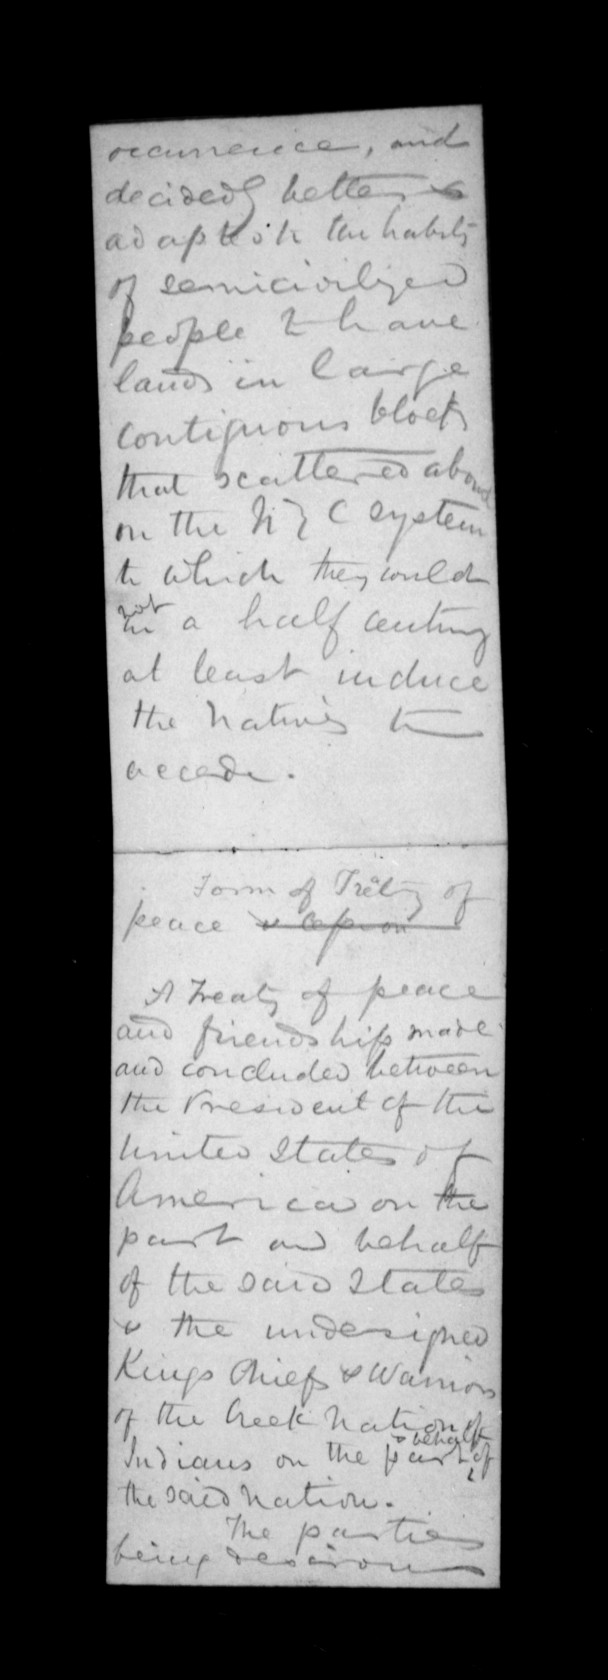 occurrence, and
decidedly better
adapted to the habits
of semicivilized
people to have
lands in large
contiguous blocks
that scattered about
on the N Z C system
to which they could
not in a half century
at least induce
the natives to
accede.
Form of Treaty of
peace &
A Treaty of peace
and friendship made
and concluded between
the President of the
United States of
America on the
part and behalf
of the said States
& the undersigned
Kings Chiefs & Warriors
of the Creek Nation of
Indians on the part & behalf of
the said Nation.
The parties
being desirous